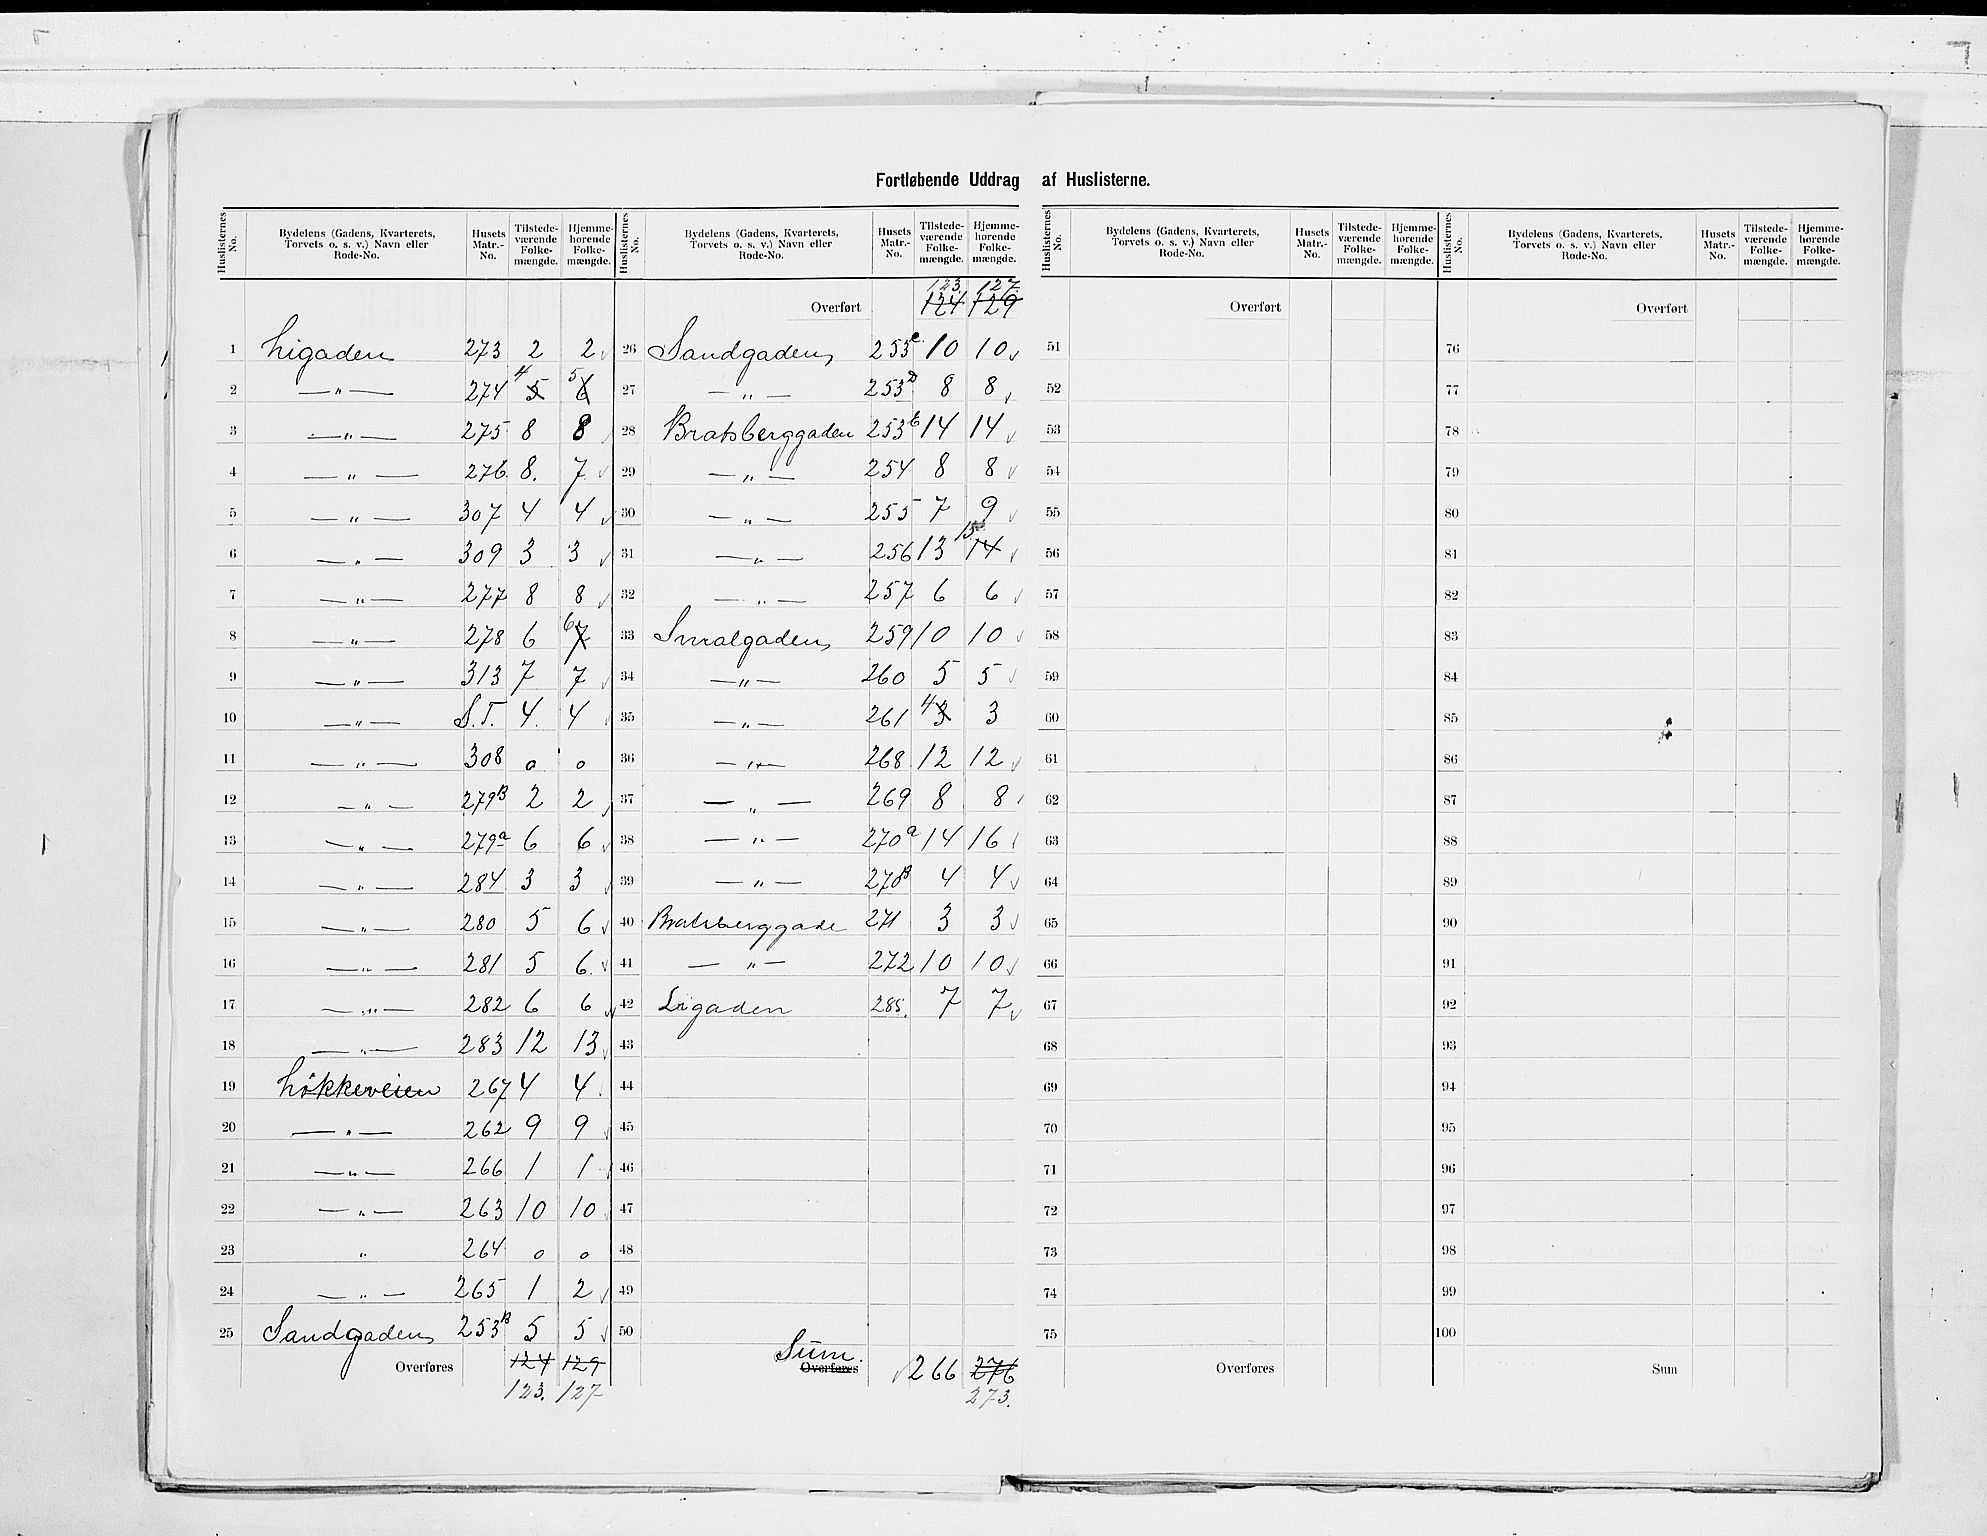 Fortløbende Uddrag af Huslisterne.
Huslisternes No. | Bydelens (Gadens, Kvarterets, Torvets o. s. v.) Navn eller Rode-No. | Husets Matr.-No. | Tilstedeværende Folkemængde. | Hjemmehørende Folkemængde.
1 Ligaden 273 2 2
2 —"— 274 4 5 5 6
3 —"— 275 8 8
4 —"— 276 8. 7
5 —"— 307 4 4
6 —"— 309 3 3
7 —"— 277 8 8
8 —"— 278 6 6 7
9 —"— 313 7 7
10 —"— S.T. 4 4
11 —"— 308 0 0
12 —"— 279B 2 2
13 —"— 279a 6 6
14 —"— 284 3 3
15 —"— 280 5 6
16 —"— 281 5 6
17 —"— 282 6 6
18 —"— 283 12 13
19 Løkkeveien 267 4 4
20 —"— 262 9 9
21 —"— 266 1 1
22 —"— 263 10 10
23 " 264 0 0
24 —"— 265 1 2
25 Sandgaden 253B 5 5
Overføres 124 129
123. 127
Huslisternes No. | Bydelens (Gadens, Kvarterets, Torvets o. s. v.) Navn eller Rode-No. | Husets Matr.-No. | Tilstedeværende Folkemængde. | Hjemmehørende Folkemængde.
123. 127.
Overført 124 129
26 Sandgaden 253c 10 10
27 —"— 253D 8 8
28 Bratsberggaden 253 14 14
29 —"— 254 8 8
30 —"— 255 7 9
31 —"— 256 13 15 14
32 —"— 257 6 6
33 Smalgaden 259 10 10
34 —"— 260 5 5
35 —"— 261 4 3 3
36 —"— 268 12 12
37 —"— 269 8 8
38 —"— 270a 14 16
39 —"— 270B 4 4
40 Bratsberggade 271 3 3
41 —"— 272 10 10
42 Ligaden 285. 7 7
43
44
45
46
47
48
49
50
Sum.
Overføres 266 276
273.
Huslisternes No. | Bydelens (Gadens, Kvarterets, Torvets o. s. v.) Navn eller Rode-No. | Husets Matr.-No. | Tilstedeværende Folkemængde. | Hjemmehørende Folkemængde.
Overført
51
52
53
54
55
56
57
58
59
60
61
62
63
64
65
66
67
68
69
70
71
72
73
74
75
Overføres
Huslisternes No. | Bydelens (Gadens, Kvarterets, Torvets o. s. v.) Navn eller Rode-No. | Husets Matr.-No. | Tilstedeværende Folkemængde. | Hjemmehørende Folkemængde.
Overført
76
77
78
79
80
81
82
83
84
85
86
87
88
89
90
91
92
93
94
95
96
97
98
99
100
Sum